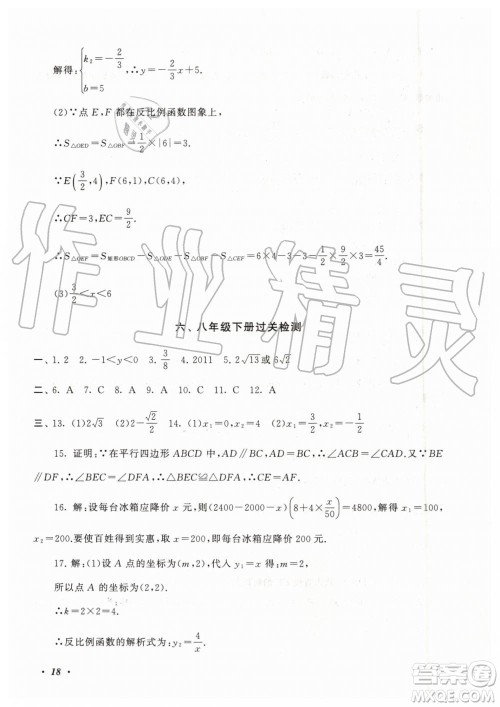 解得:{k₂=-2/3, b=5, ∴y=-2/3x+5.
(2)∵点 E,F 都在反比例函数图象上,
∴S△OED=S△OBF=1/2×|6|=3.
∵E(3/2,4),F(6,1),C(6,4),
∴CF=3,EC=9/2.
∴S△OEF=S矩形OBCD-S△OED-S△OBF-S△ECF=6×4-3-3-1/2×9/2×3=45/4.
(3)3/2<x<6
六、八年级下册过关检测
一、1.2 2.-1<y<0 3.3/8 4.2011 5.2√13或6√2
二、6.A 7.A 8.B 9.A 10.C 11.C 12.A
三、13.(1)2√3 (2)2-√2/2 14.(1)x₁=3/2,x₂=-1/2
15.证明:∵在平行四边形 ABCD 中,AD∥BC,AD=BC,∴∠ADF=∠CBE.又∵BE∥DF,∴∠BEC=∠DFA,∴△BEC≌△DFA,∴CE=AF.
16.解:设每台冰箱应降价 x 元,则(2400-2000-x)(8+4×x/50)=4800,解得 x₁=100,
x₂=200.要使百姓得到实惠,取 x=200,∴每台冰箱应降价 200 元.
17.解:(1)设 A 点的坐标为(m,2),代入 y₁=x 得:m=2,
所以点 A 的坐标为(2,2),
∴k=2×2=4.
∴反比例函数的解析式为:y₂=4/x.
• 18 •
作业精灵
答案圈
MXQE.COM